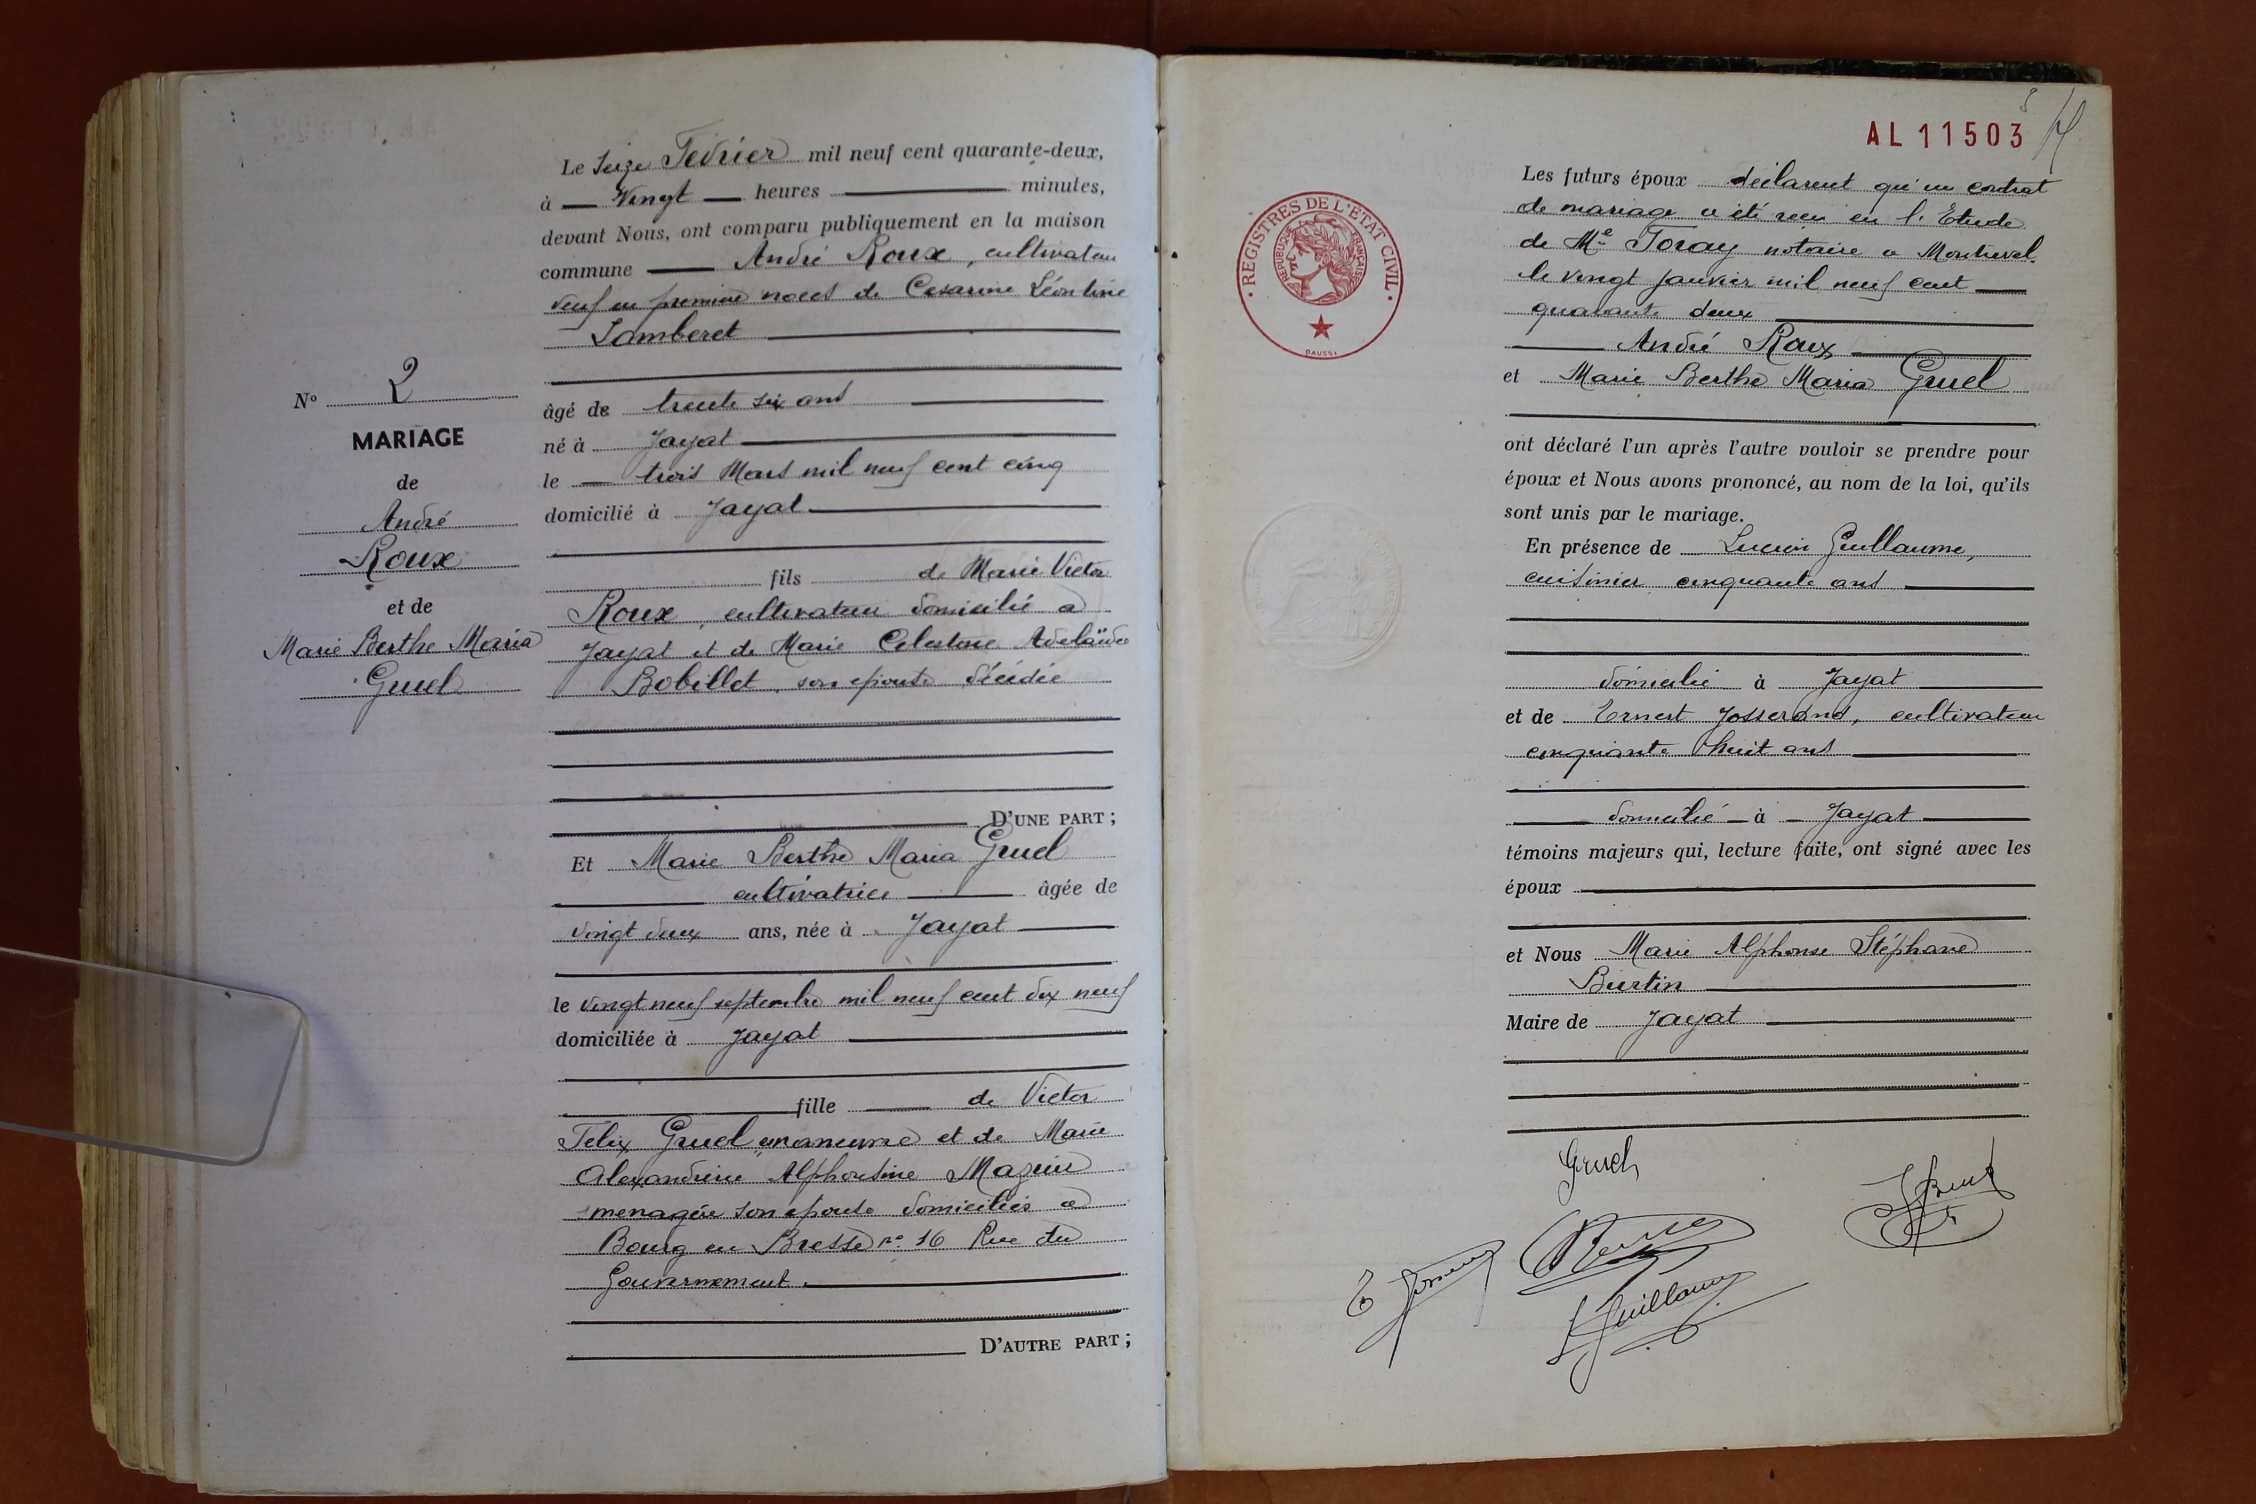 Le Seize Février mil neuf cent quarante-deux,
à Vingt heures minutes,
devant Nous, ont comparu publiquement en la maison
commune André Roux, cultivateur
veuf en premiere noces de Cesarine Léontine
Lamberet
N° 2
MARIAGE
de
André
Roux
et de
Marie Berthe Maria
Gruel
âgé de trente six ans
né à Jayat
le trois Mars mil neuf cent cinq
domicilié à Jayat
fils de Marie Victor
Roux, cultivateur domicilié a
Jayat et de Marie Celestine Adelaïde
Bobillet, son epouse décédée
D'UNE PART ;
Et Marie Berthe Maria Gruel
cultivatrice âgée de
vingt deux ans, née à Jayat
le vingt neuf septembre mil neuf cent dix neuf
domiciliée à Jayat
fille de Victor
Felix Gruel, et de Marie
Alexandrine Alphonsine Mazuir
menagère son epouse domiciliés a
Bourg en Bresse n° 16 Rue du
Gouvernement.
D'AUTRE PART ;
AL 11503
REGISTRES DE L'ÉTAT CIVIL
RÉPUBLIQUE FRANÇAISE
DAUSSI
Les futurs époux déclarent qu'un contrat
de mariage a été reçu en l'Etude
de Me Foray notaire a Montrevel
le vingt janvier mil neuf cent
quarante deux
André Roux
et Marie Berthe Maria Gruel
ont déclaré l'un après l'autre vouloir se prendre pour
époux et Nous avons prononcé, au nom de la loi, qu'ils
sont unis par le mariage.
En présence de Lucien Guillaume,
cuisinier cinquante ans
domicilié à Jayat
et de Ernest Josserand, cultivateur
cinquante huit ans
domicilié à Jayat
témoins majeurs qui, lecture faite, ont signé avec les
époux
et Nous Marie Alphonse Stéphane
Burtin
Maire de Jayat
Gruel
L Guillaume